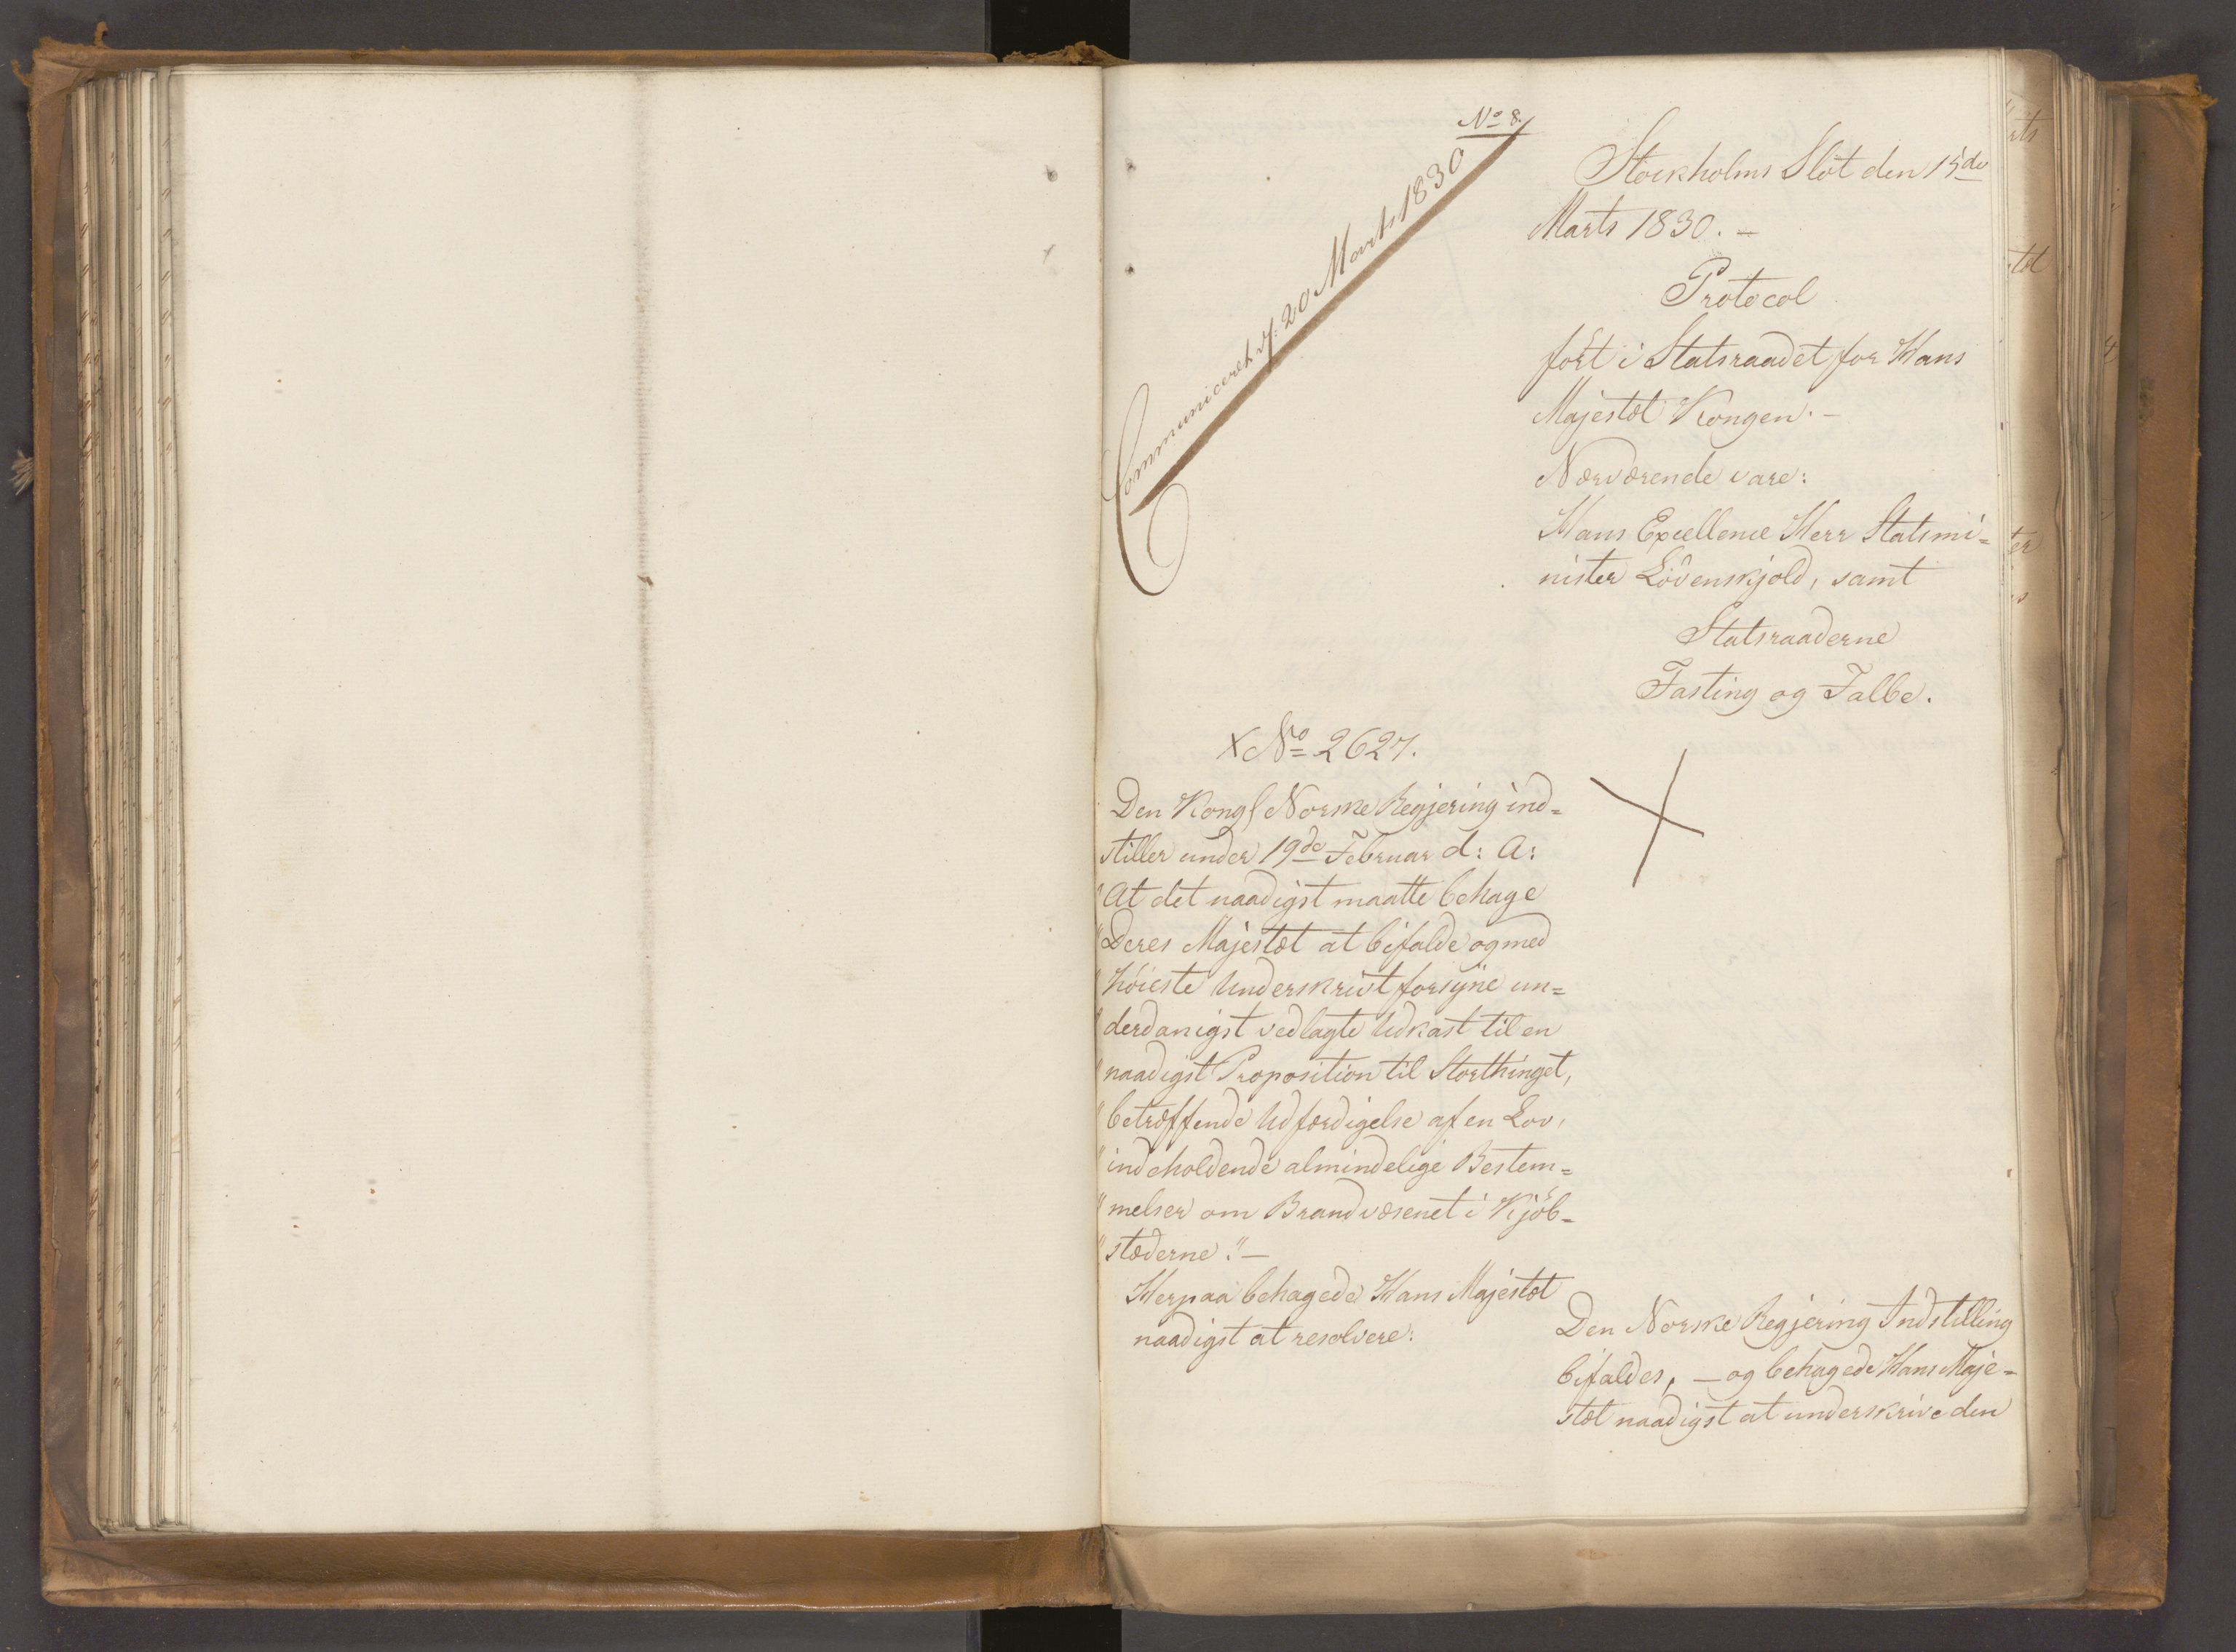 No 8.
Communiceret d. 20 Marts 1830
Stockholms Slot den 15de
Marts 1830. —
Protocol
fört i Statsraadet for Hans
Majestæt Kongen. —
Nærværende vare:
Hans Excellence Herr Statsmi=
nister Lövenskjold, samt
Statsraaderne
Fasting og Falbe.
X No 2627.
Den Kongl Norske Regjering ind=
stiller under 19de Februar d: A:
"At det naadigst maatte behage
"Deres Majestæt at bifalde og med
"Höieste Underskrivt forsyne un=
"derdanigst vedlagte Udkast til en
"naadigst Proposition til Storthinget,
"betræffende Udfærdigelse af en Lov,
"indeholdende almindelige Bestem=
"melser om Brandvæsenet i Kjöb=
"stæderne." —
Herpaa behagede Hans Majestæt
naadigst at resolvere:
Den Norske Regjering Indstilling
bifaldes, — og behagede Hans Maje=
stæt naadigst at underskrive den